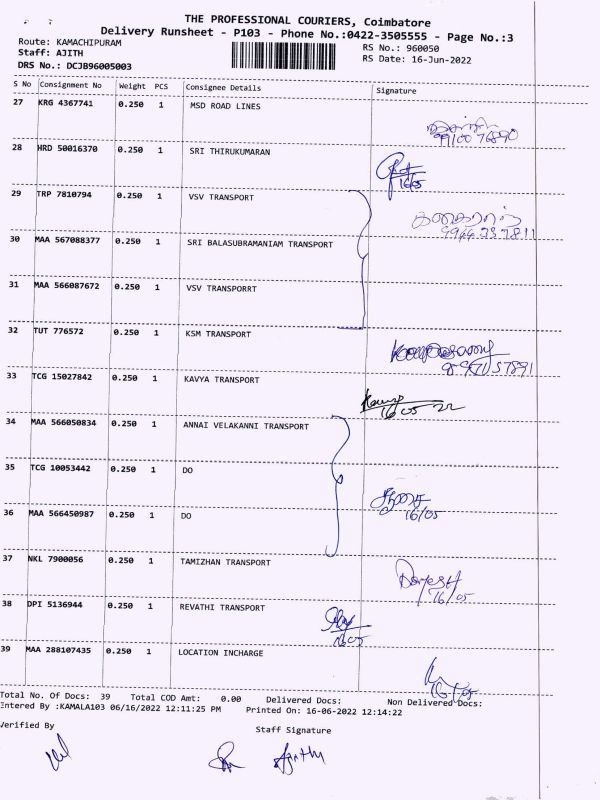 THE PROFESSIONAL COURIERS, Coimbatore
Delivery Runsheet - P103 - Phone No.:0422-3505555 - Page No.:3
Route: KAMACHIPURAM
RS No.: 960050
Staff: AJITH
RS Date: 16-Jun-2022
DRS No.: DCJB96005003
S No Consignment No Weight PCS Consignee Details Signature
27 KRG 4367741 0.250 1 MSD ROAD LINES
28 HRD 50016370 0.250 1 SRI THIRUKUMARAN
16/05
29 TRP 7810794 0.250 1 VSV TRANSPORT
30 MAA 567088377 0.250 1 SRI BALASUBRAMANIAM TRANSPORT
31 MAA 566087672 0.250 1 VSV TRANSPORRT
32 TUT 776572 0.250 1 KSM TRANSPORT
33 TCG 15027842 0.250 1 KAVYA TRANSPORT
16/05 22
34 MAA 566050834 0.250 1 ANNAI VELAKANNI TRANSPORT
35 TCG 10053442 0.250 1 DO
16/05
36 MAA 566450987 0.250 1 DO
37 NKL 7900056 0.250 1 TAMIZHAN TRANSPORT
16/05
38 DPI 5136944 0.250 1 REVATHI TRANSPORT
16/05
39 MAA 288107435 0.250 1 LOCATION INCHARGE
16/05
Total No. Of Docs: 39 Total COD Amt: 0.00 Delivered Docs: Non Delivered Docs:
Entered By :KAMALA103 06/16/2022 12:11:25 PM Printed On: 16-06-2022 12:14:22
Verified By Staff Signature
Ajith